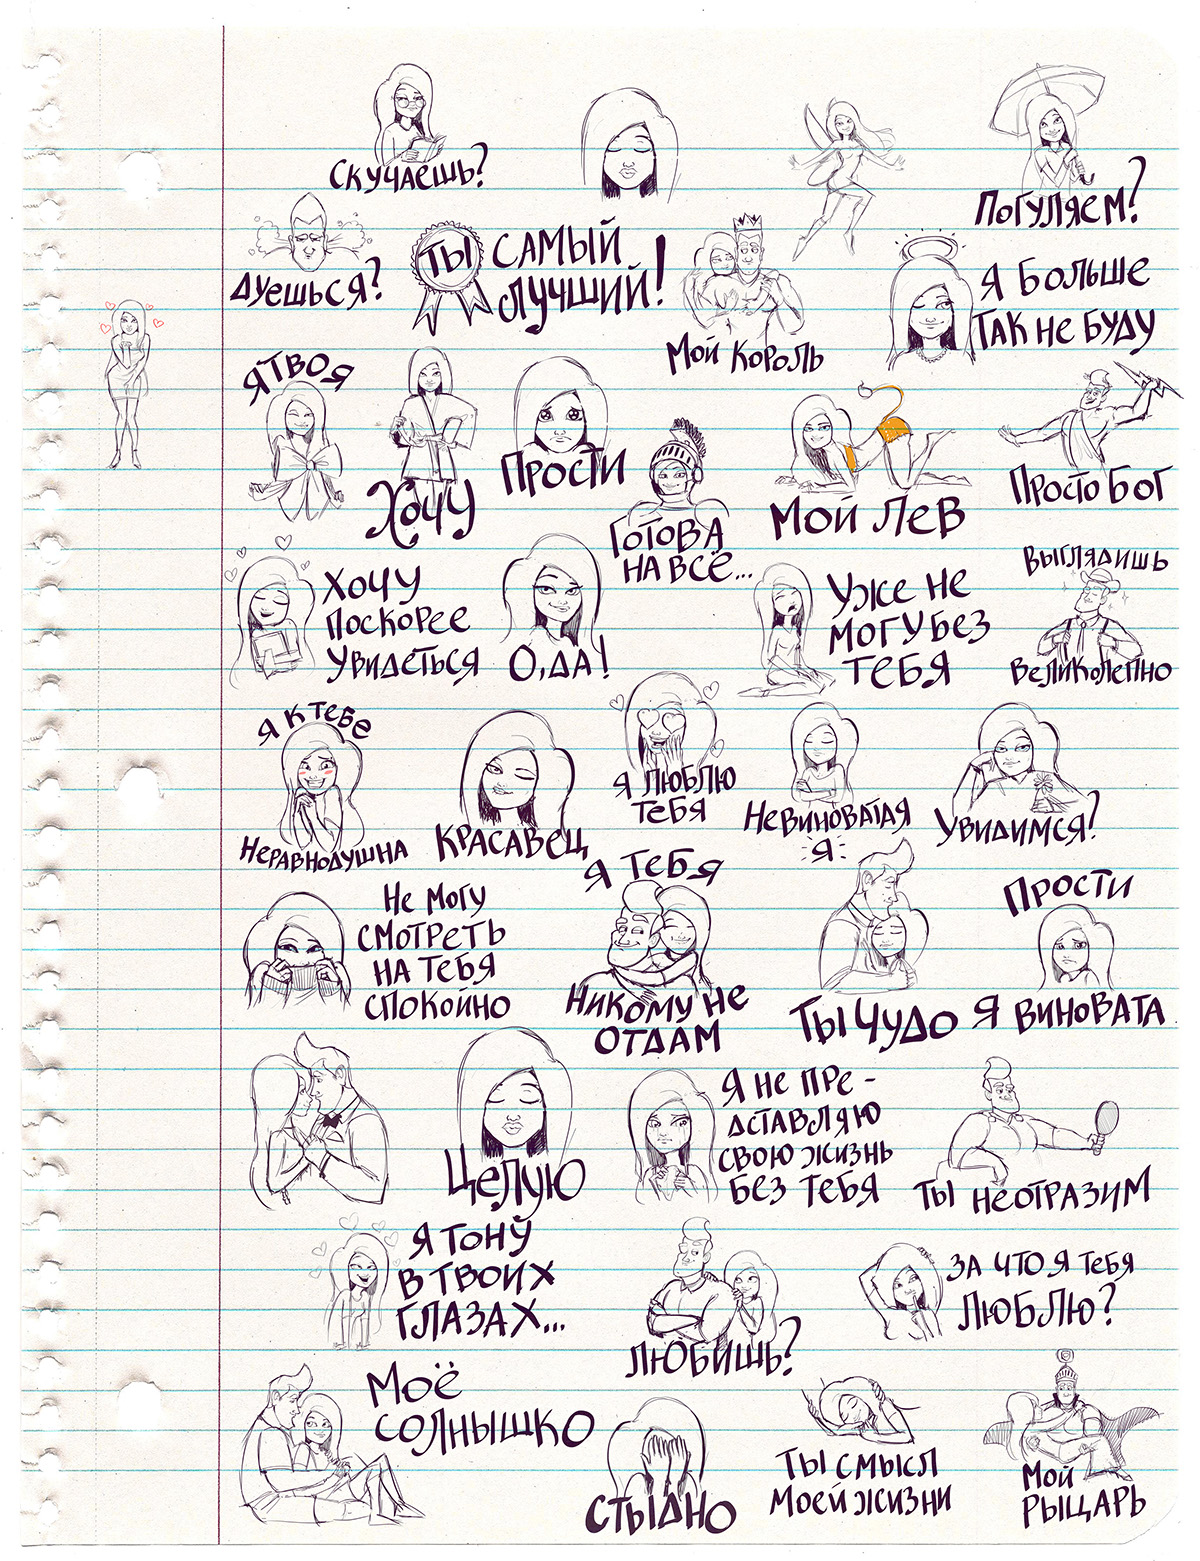 Скучаешь?
Погуляем?
Дуешься?
Ты самый
лучший!
Мой король
Я больше
так не буду
Я твоя
Хочу
Прости
Готова
на всё...
Мой лев
Просто Бог
Хочу
поскорее
увидеться
О, да!
Уже не
могу без
тебя
Выглядишь
великолепно
Я к тебе
неравнодушна
Красавец
Я люблю
тебя
Невиноватая
я
Увидимся?
Не могу
смотреть
на тебя
спокойно
Я тебя
никому не
отдам
Ты чудо
Прости
я виновата
Целую
Я не пре-
дставляю
свою жизнь
без тебя
Ты неотразим
Я тону
в твоих
глазах...
Любишь?
За что я тебя
люблю?
Моё
солнышко
Стыдно
Ты смысл
моей жизни
Мой
рыцарь